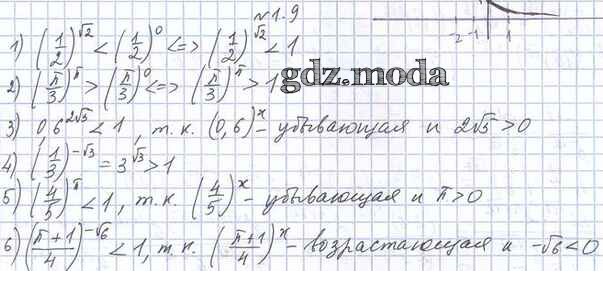 №1.9
-2 -1 1
1) (1/2)^√2 < (1/2)^0 <=> (1/2)^√2 < 1
2) (π/3)^π > (π/3)^0 <=> (π/3)^π > 1
gdz.moda
3) 0,6^2√3 < 1, т.к. (0,6)^x - убывающая и 2√5 > 0
4) (1/3)^-√3 = 3^√3 > 1
5) (4/5)^π < 1, т.к. (4/5)^x - убывающая и π > 0
6) ((π+1)/4)^-√6 < 1, т.к. ((π+1)/4)^x - возрастающая и -√6 < 0